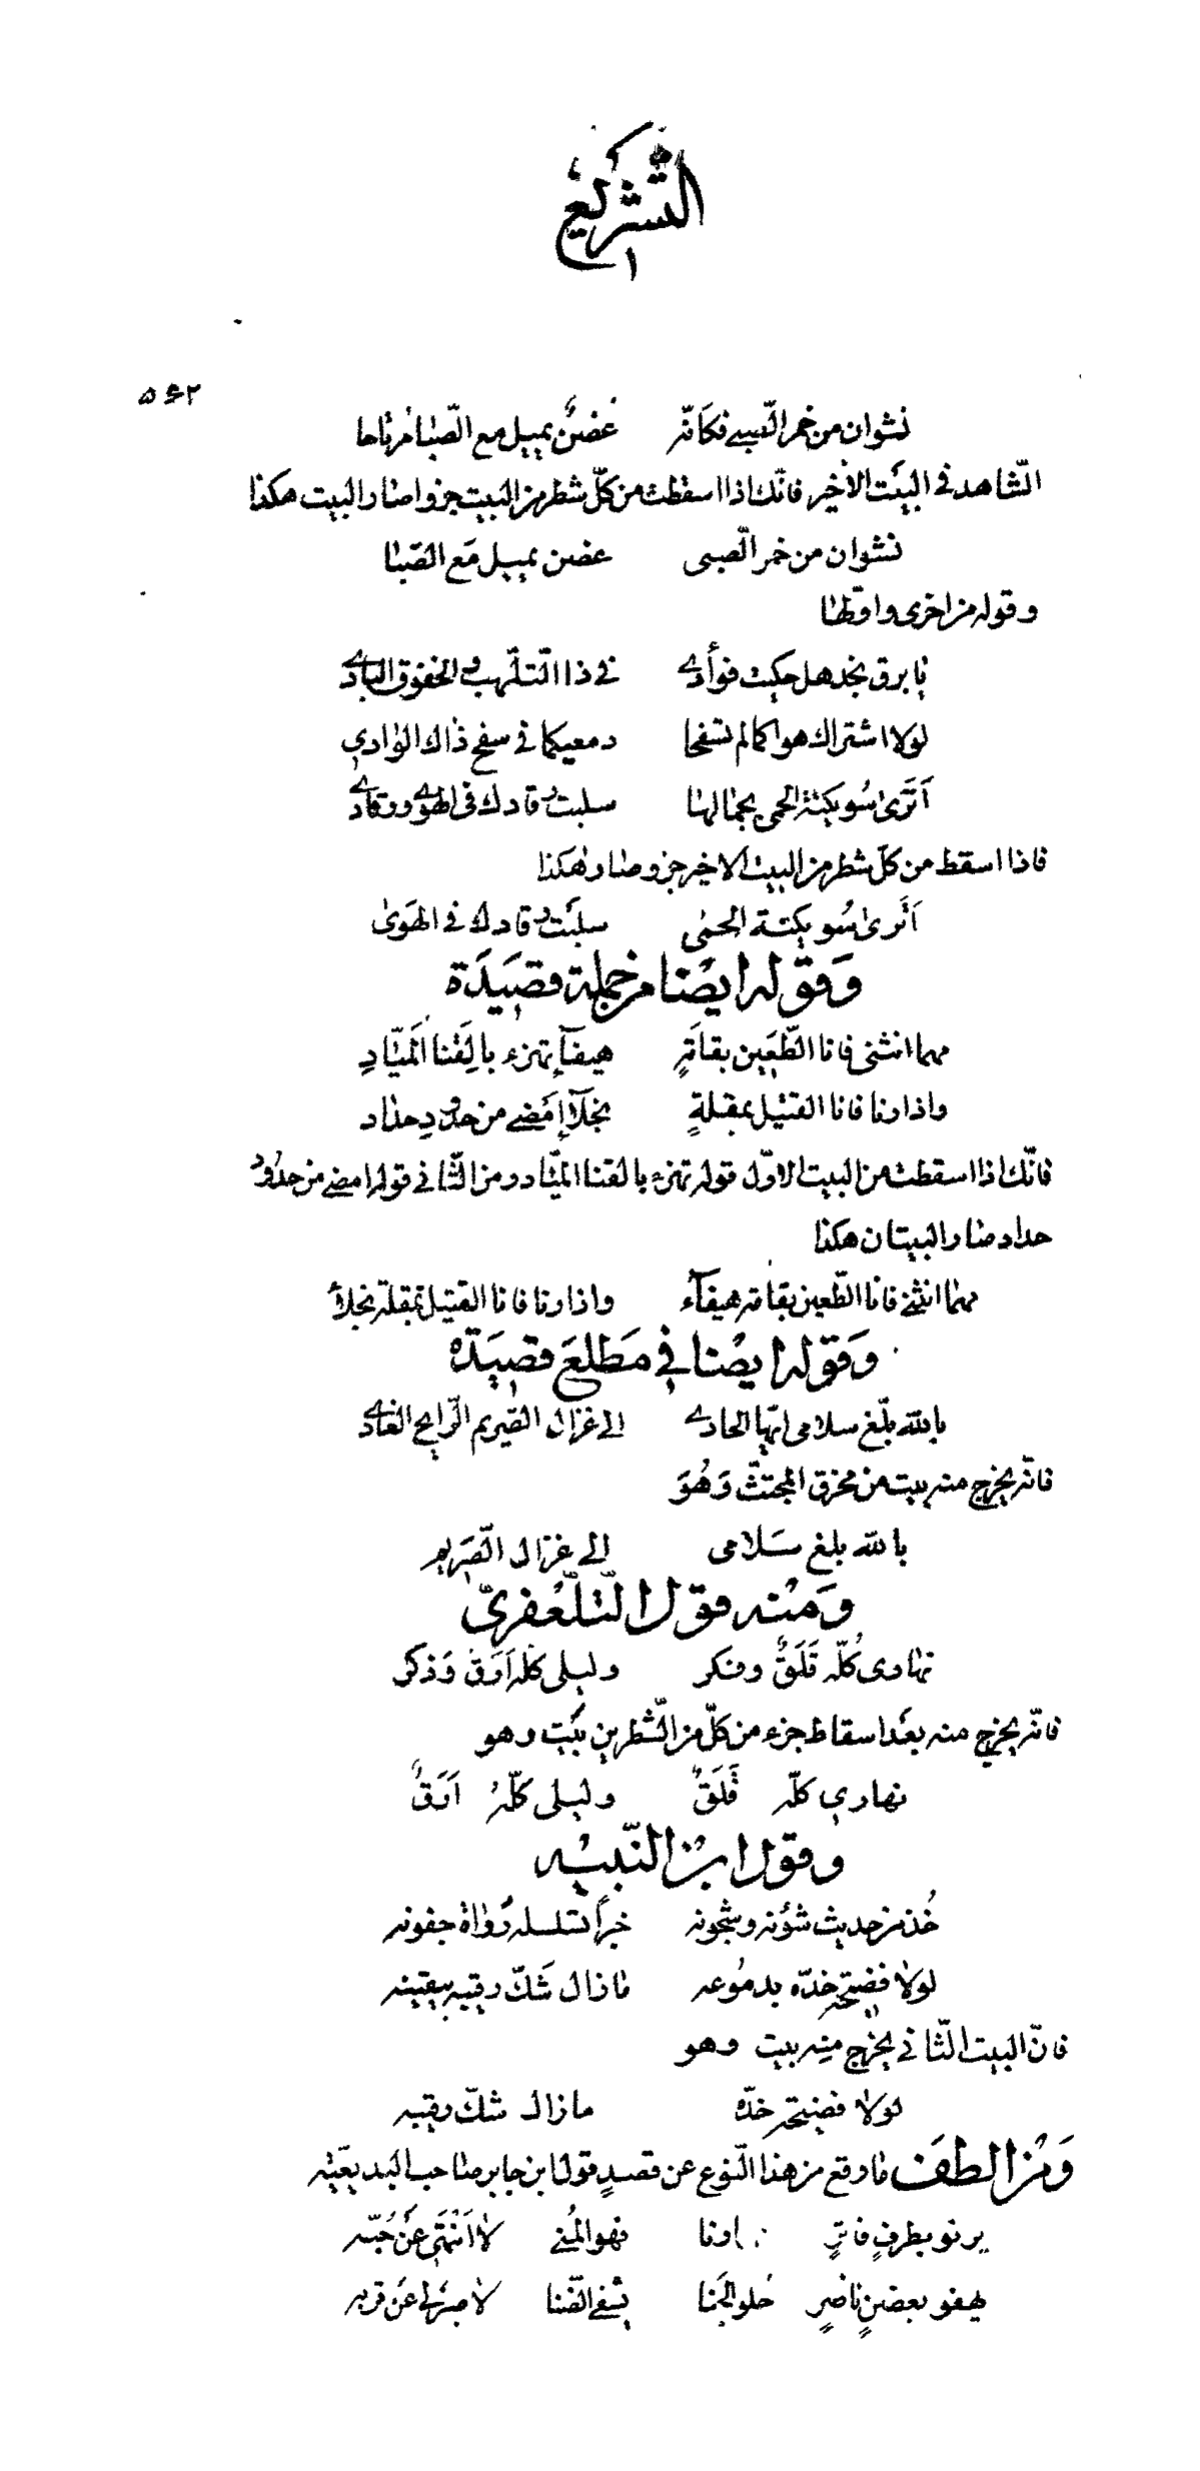 التّشريع
٥٤٢
نشوان من خمر الصّبى فكأنّه غُصنٌ يميل مع الصّبا مرتاحا
الشّاهد في البيَت الأخير فانّك اذا اسقطت من كلّ شطر من البيت جزوا صار البيت هكذا
نشوان من خمر الصّبى غصن يميل مَع الصّبا
وقوله من اخرى واوّلها
يا برق نجد هل حكيت فوأدي في ذا التّلهب والخفوق البادي
لولا اشتراك هواكما لم تسفحا دمعيكما في سفح ذاك الوادي
اَتَرى سُويكنة الحمى بجمالها سلبت رقادك في الهوى ورقادي
فاذا اسقط من كلّ شطر من البيت الاخير جزو صار هكذا
اَتَرى سُويكنة الحمى سلبَت رقادك في الهَوىٰ
وَقوله ايضا من جملة قصيَدَة
مهما انثنى فانا الطّعَين بقاَمَةٍ هيفآءِ تهزء بالقنا الَميّادِ
واذا رنا فانا القتيل بمقلةٍ نجلآءِ اَمضى من حدودِ حداد
فانّك اذا اسقطت من البيت الاوّل قوله تهزء بالقنا الميّاد ومن الثّاني قوله امضى من حدود
حداد صار البيتان هكذا
مهما انثنى فانا الطّعين بقامة هيفآء واذا رنا فانا القتيل بمقلة نجلاء
وَقوله ايضا في مَطلع قصيَدَة
بالله بلّغ سلامى ايّها الحادي الى غزال الصّريم الرّايح الغادي
فانّه يخرج منه بيت من مجزوّ المجتثّ وَهُوَ
بالله بلغ سَلامى الى غزال الصّرَيم
وَمنه قول التّلّعفرىّ
نهاوى كُلّه قَلَقٌ وفكر وليلى كلّه اَرَق وَذكر
فانّه يخرج منه بعَد اسقاط جزء من كلّ من الشّطرين بيَت وهو
نهاري كلّه قَلَقٌ وليلى كلّهُ اَرَقٌ
وقول ابن النّبيْه
خُذ من حديث شؤنه وشجونه خبراً تسلسله رُواة جفونه
لولا فضيحة خدّه بدمُوعه ما زال شَكّ رقيبه بيقينه
فانّ البيت الثّاني يخرج منِه بيت وهو
لولا فضيحة خدّه مازال شكّ رقيبه
وَمن الطفَ ما وقع من هذا النّوع عن قصدٍ قول ابن جابر صاحب البديعيّه
يرنو بطرفٍ فاترٍ مهما رنا فهو المُنى لا اَنتَهَى عَن حُبّه
يهفو بغصنٍ ناضرٍ حُلو الجَنا يشفى الضّنا لا صبرَ لى عَن قربه